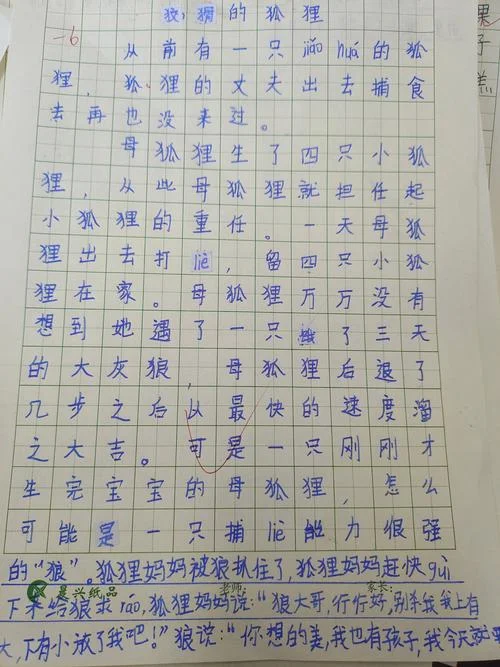 狡猾的狐狸
-6
从前有一只jiǎo huá的狐
狸，狐狸的丈夫出去捕食
去再也没来过。
母狐狸生了四只小狐
狸，从此母狐狸就担任起
小狐狸的重任。一天母狐
狸出去打liè，留四只小狐
狸在家。母狐狸万万没有
想到她遇了一只饿了三天
的大灰狼，母狐狸后退了
几步之后以最快的速度溜
之大吉。可是一只刚刚才
生完宝宝的母狐狸，怎么
可能是一只捕liè能力很强
的“狼”。狐狸妈妈被狼抓住了，狐狸妈妈赶快guì
晨兴纸品 老师： 家长：
下来给狼求ráo，狐狸妈妈说：“狼大哥，行行好，别杀我我上有
大，下有小放了我吧！”狼说：“你想的美，我也有孩子，我今天就
果
子
糕